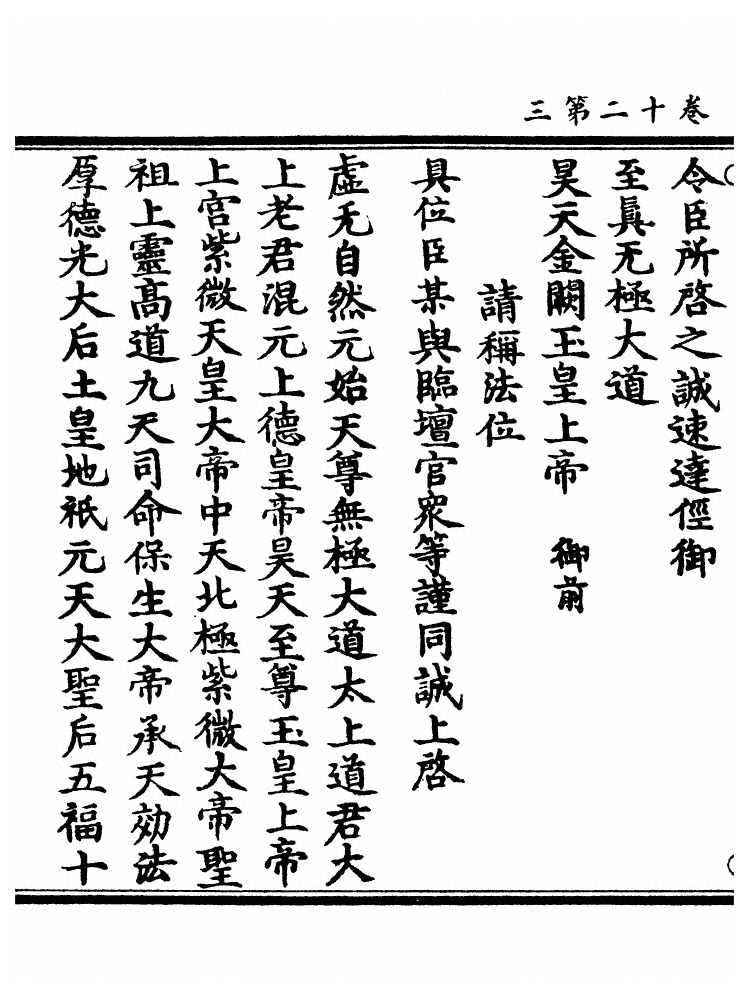 三第二十卷
令臣所啓之誠速達俓御
至眞无極大道
昊天金闕玉皇上帝　御前
請稱法位
具位臣某與臨壇官衆等謹同誠上啓
虛无自然元始天尊無極大道太上道君大
上老君混元上德皇帝昊天至尊玉皇上帝
上宮紫微天皇大帝中天北極紫微大帝聖
祖上靈高道九天司命保生大帝承天効法
厚德光大后土皇地祇元天大聖后五福十